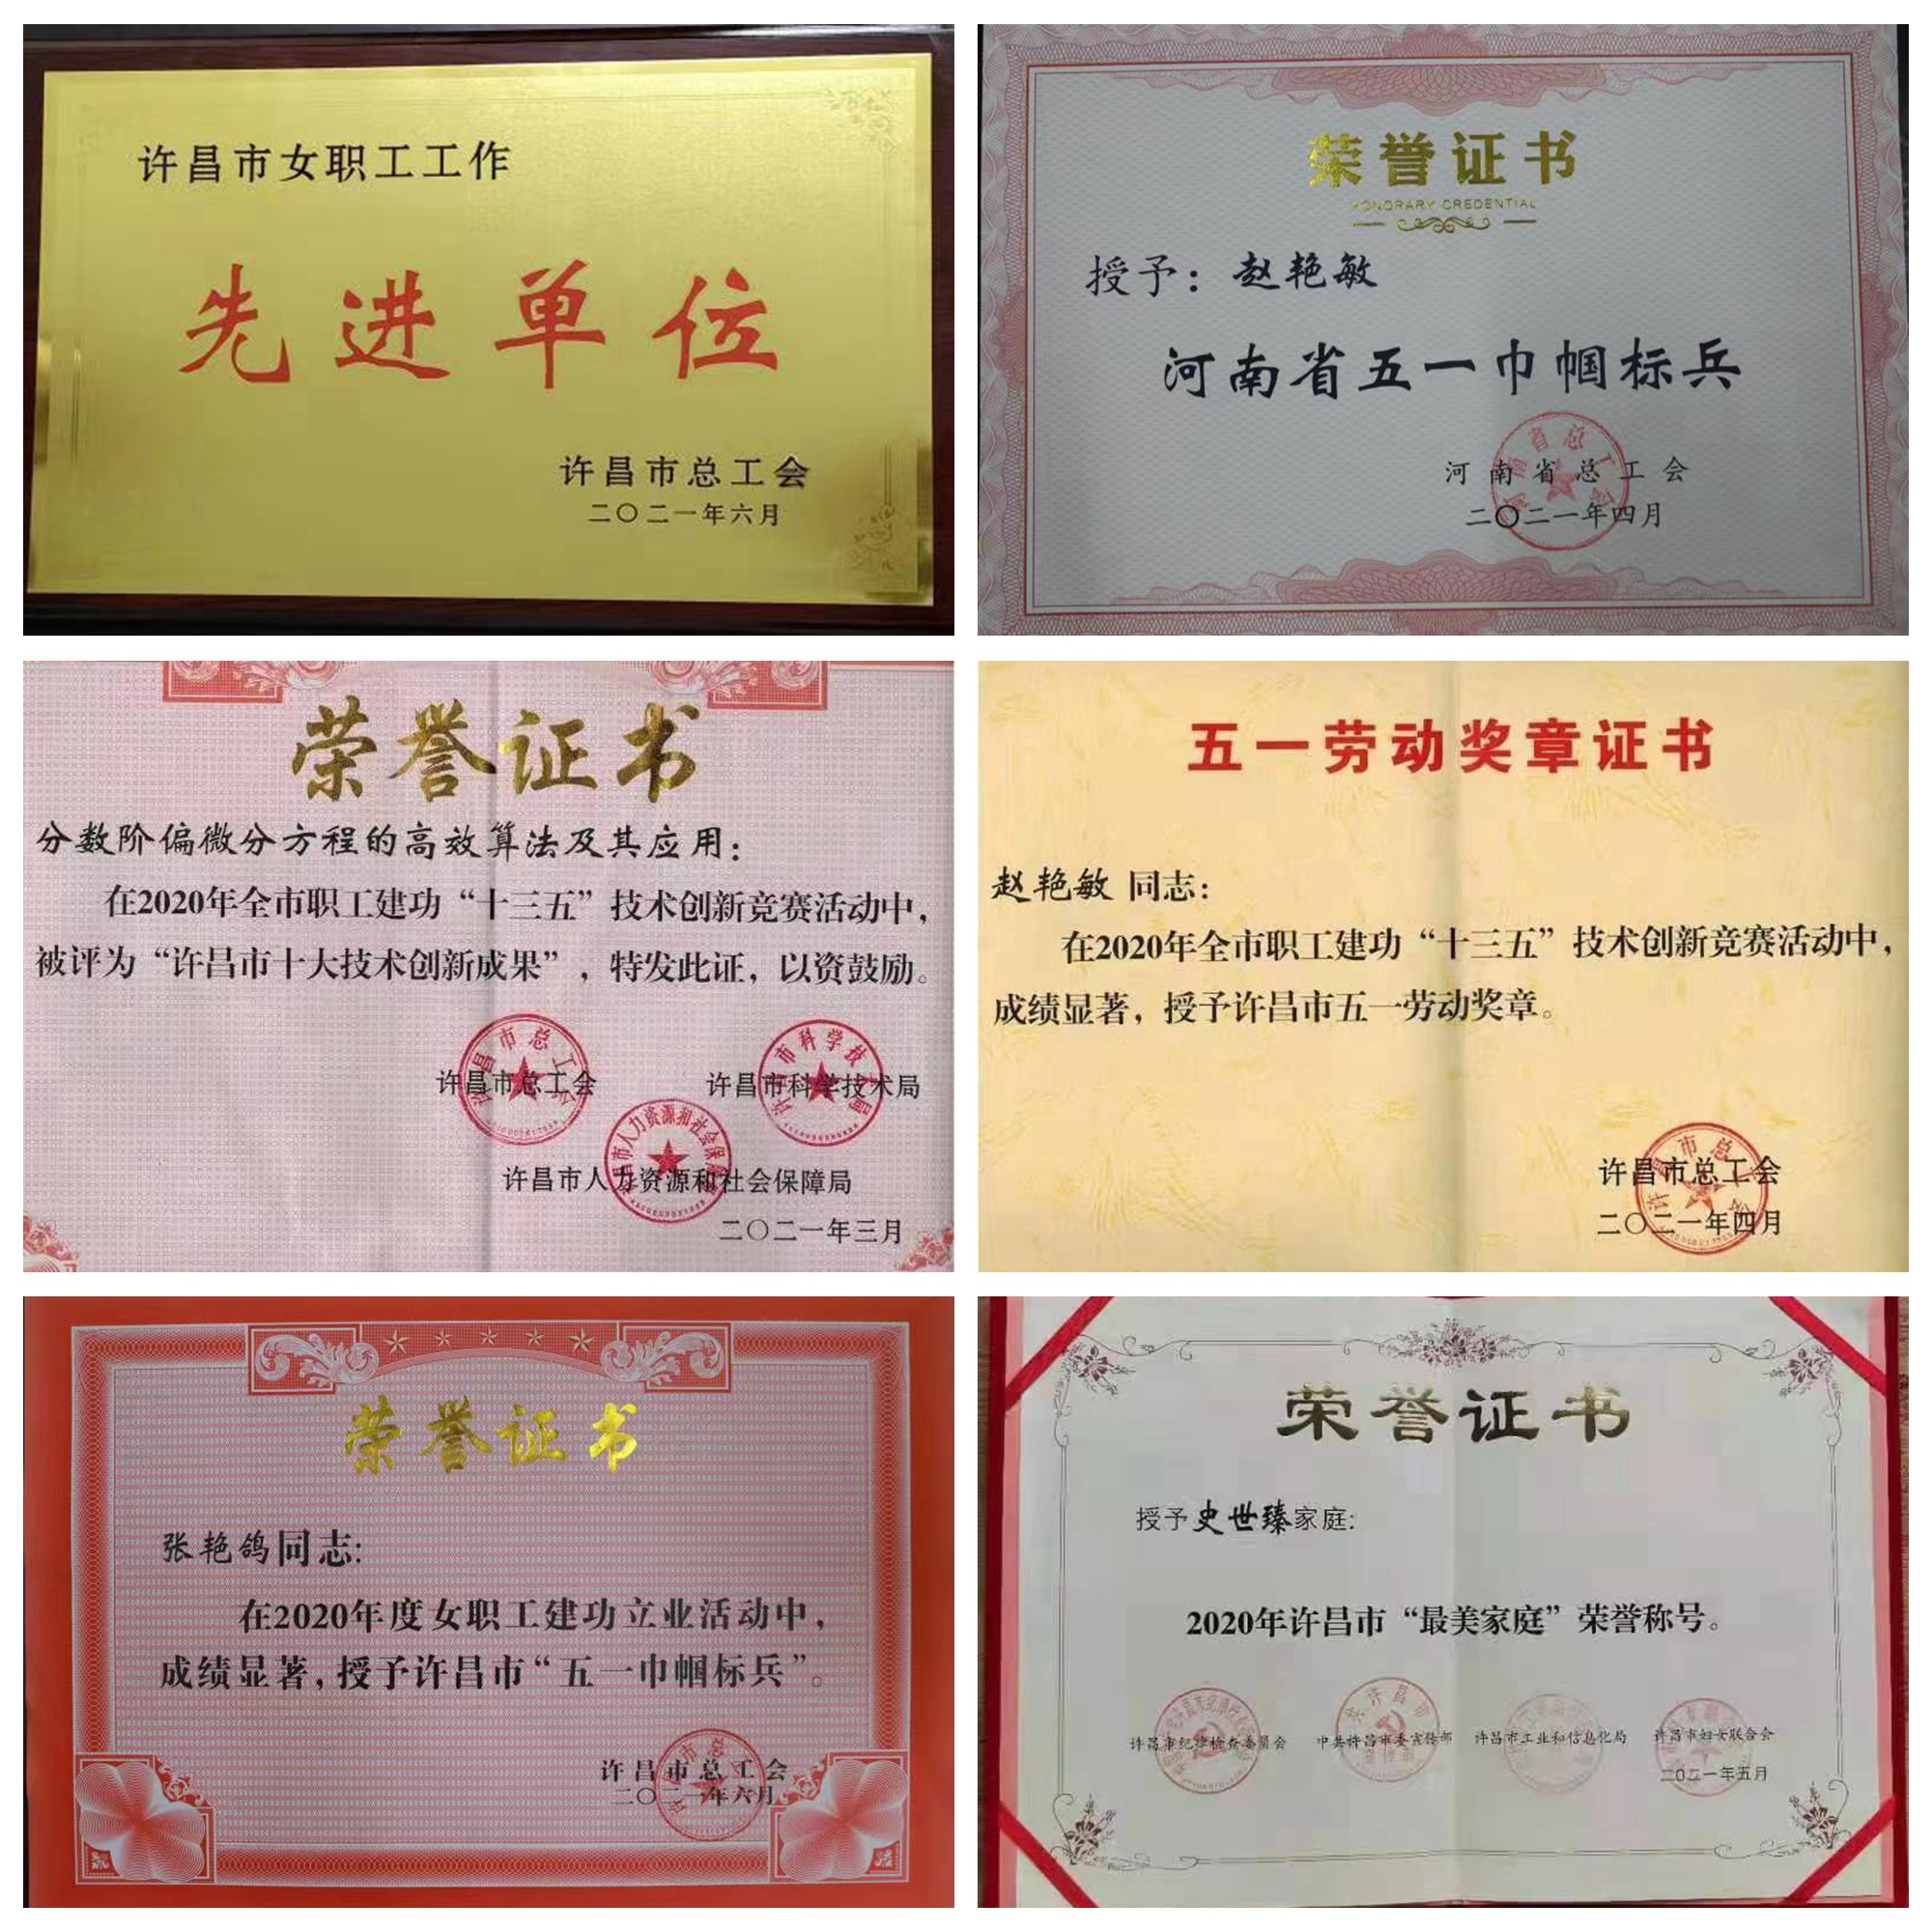 许昌市女职工工作
先进单位
许昌市总工会
二〇二一年六月
荣誉证书
HONORARY CREDENTIAL
授予：赵艳敏
河南省五一巾帼标兵
河南省总工会
二〇二一年四月
荣誉证书
分数阶偏微分方程的高效算法及其应用：
在2020年全市职工建功“十三五”技术创新竞赛活动中，
被评为“许昌市十大技术创新成果”，特发此证，以资鼓励。
许昌市总工会 许昌市科学技术局
许昌市人力资源和社会保障局
二〇二一年三月
五一劳动奖章证书
赵艳敏 同志：
在2020年全市职工建功“十三五”技术创新竞赛活动中，
成绩显著，授予许昌市五一劳动奖章。
许昌市总工会
二〇二一年四月
荣誉证书
张艳鸽同志：
在2020年度女职工建功立业活动中，
成绩显著，授予许昌市“五一巾帼标兵”。
许昌市总工会
二〇二一年六月
荣誉证书
授予史世臻家庭：
2020年许昌市“最美家庭”荣誉称号。
许昌市纪律检查委员会 中共许昌市委宣传部 许昌市工业和信息化局 许昌市妇女联合会
二〇二一年五月